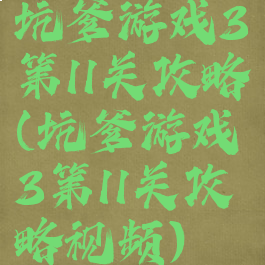 坑爹游戏3
第11关攻略
(坑爹游戏
3第11关攻
略视频)